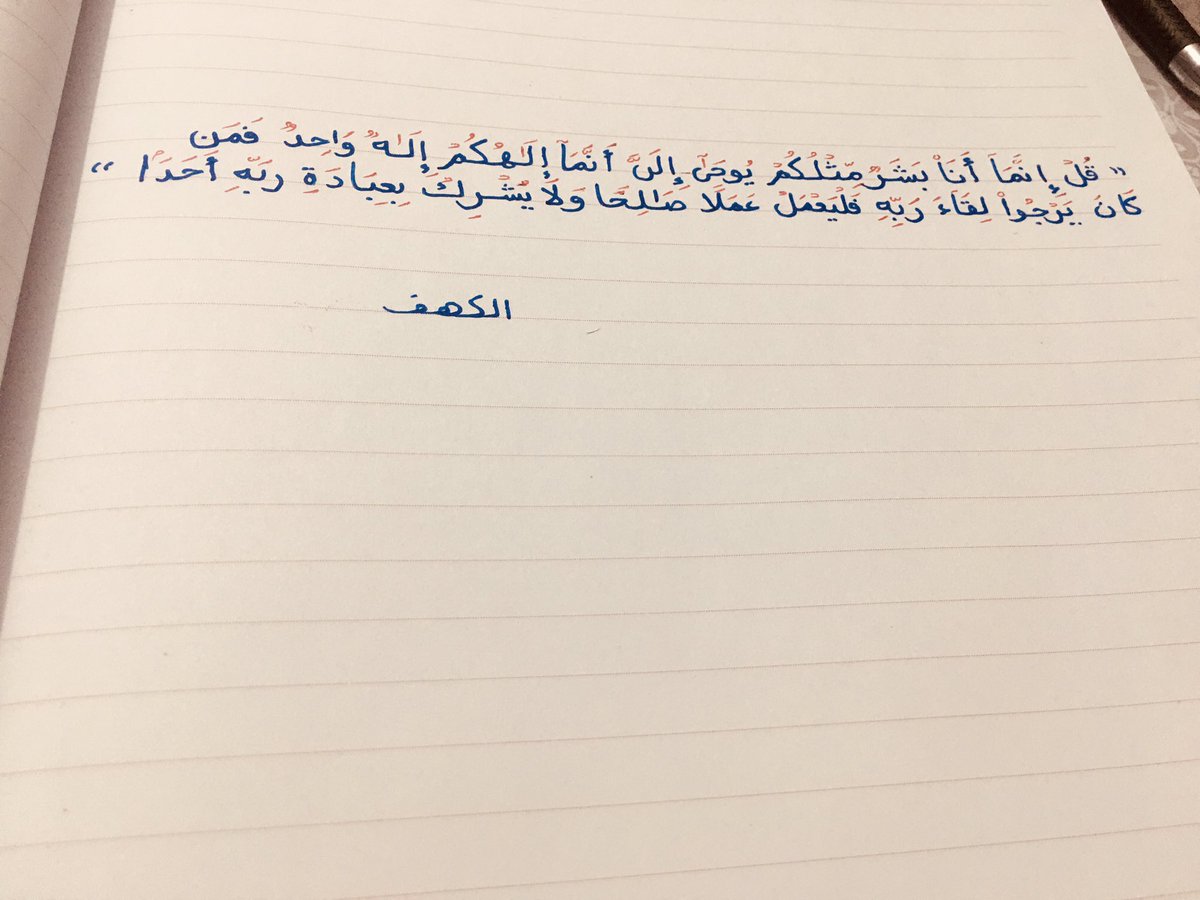 ” قُلْ إِنَّمَآ أَنَا۠ بَشَرٌ مِّثْلُكُمْ يُوحَىٰٓ إِلَىَّ أَنَّمَآ إِلَـٰهُكُمْ إِلَـٰهٌ وَاحِدٌ فَمَن
كَانَ يَرْجُوا۟ لِقَآءَ رَبِّهِ فَلْيَعْمَلْ عَمَلًا صَـٰلِحًا وَلَا يُشْرِكْ بِعِبَادَةِ رَبِّهِ أَحَدَۢا “
الكهف